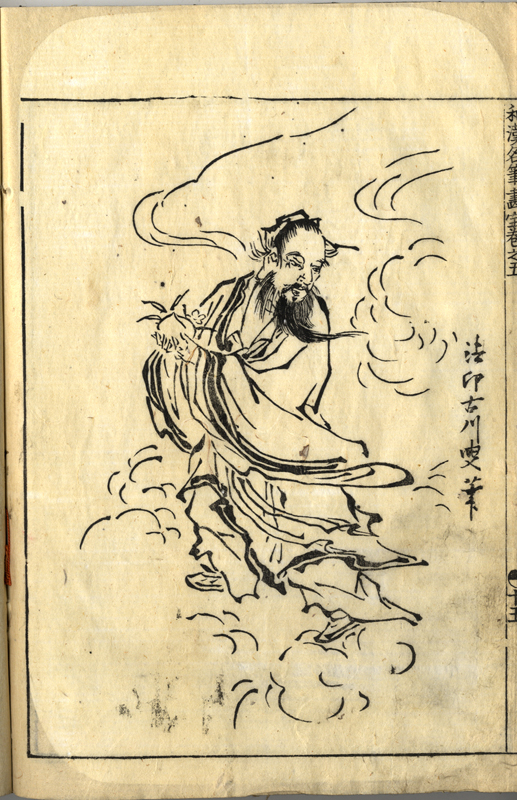 和漢名筆畫宝巻之五
法印古川叟筆
十五